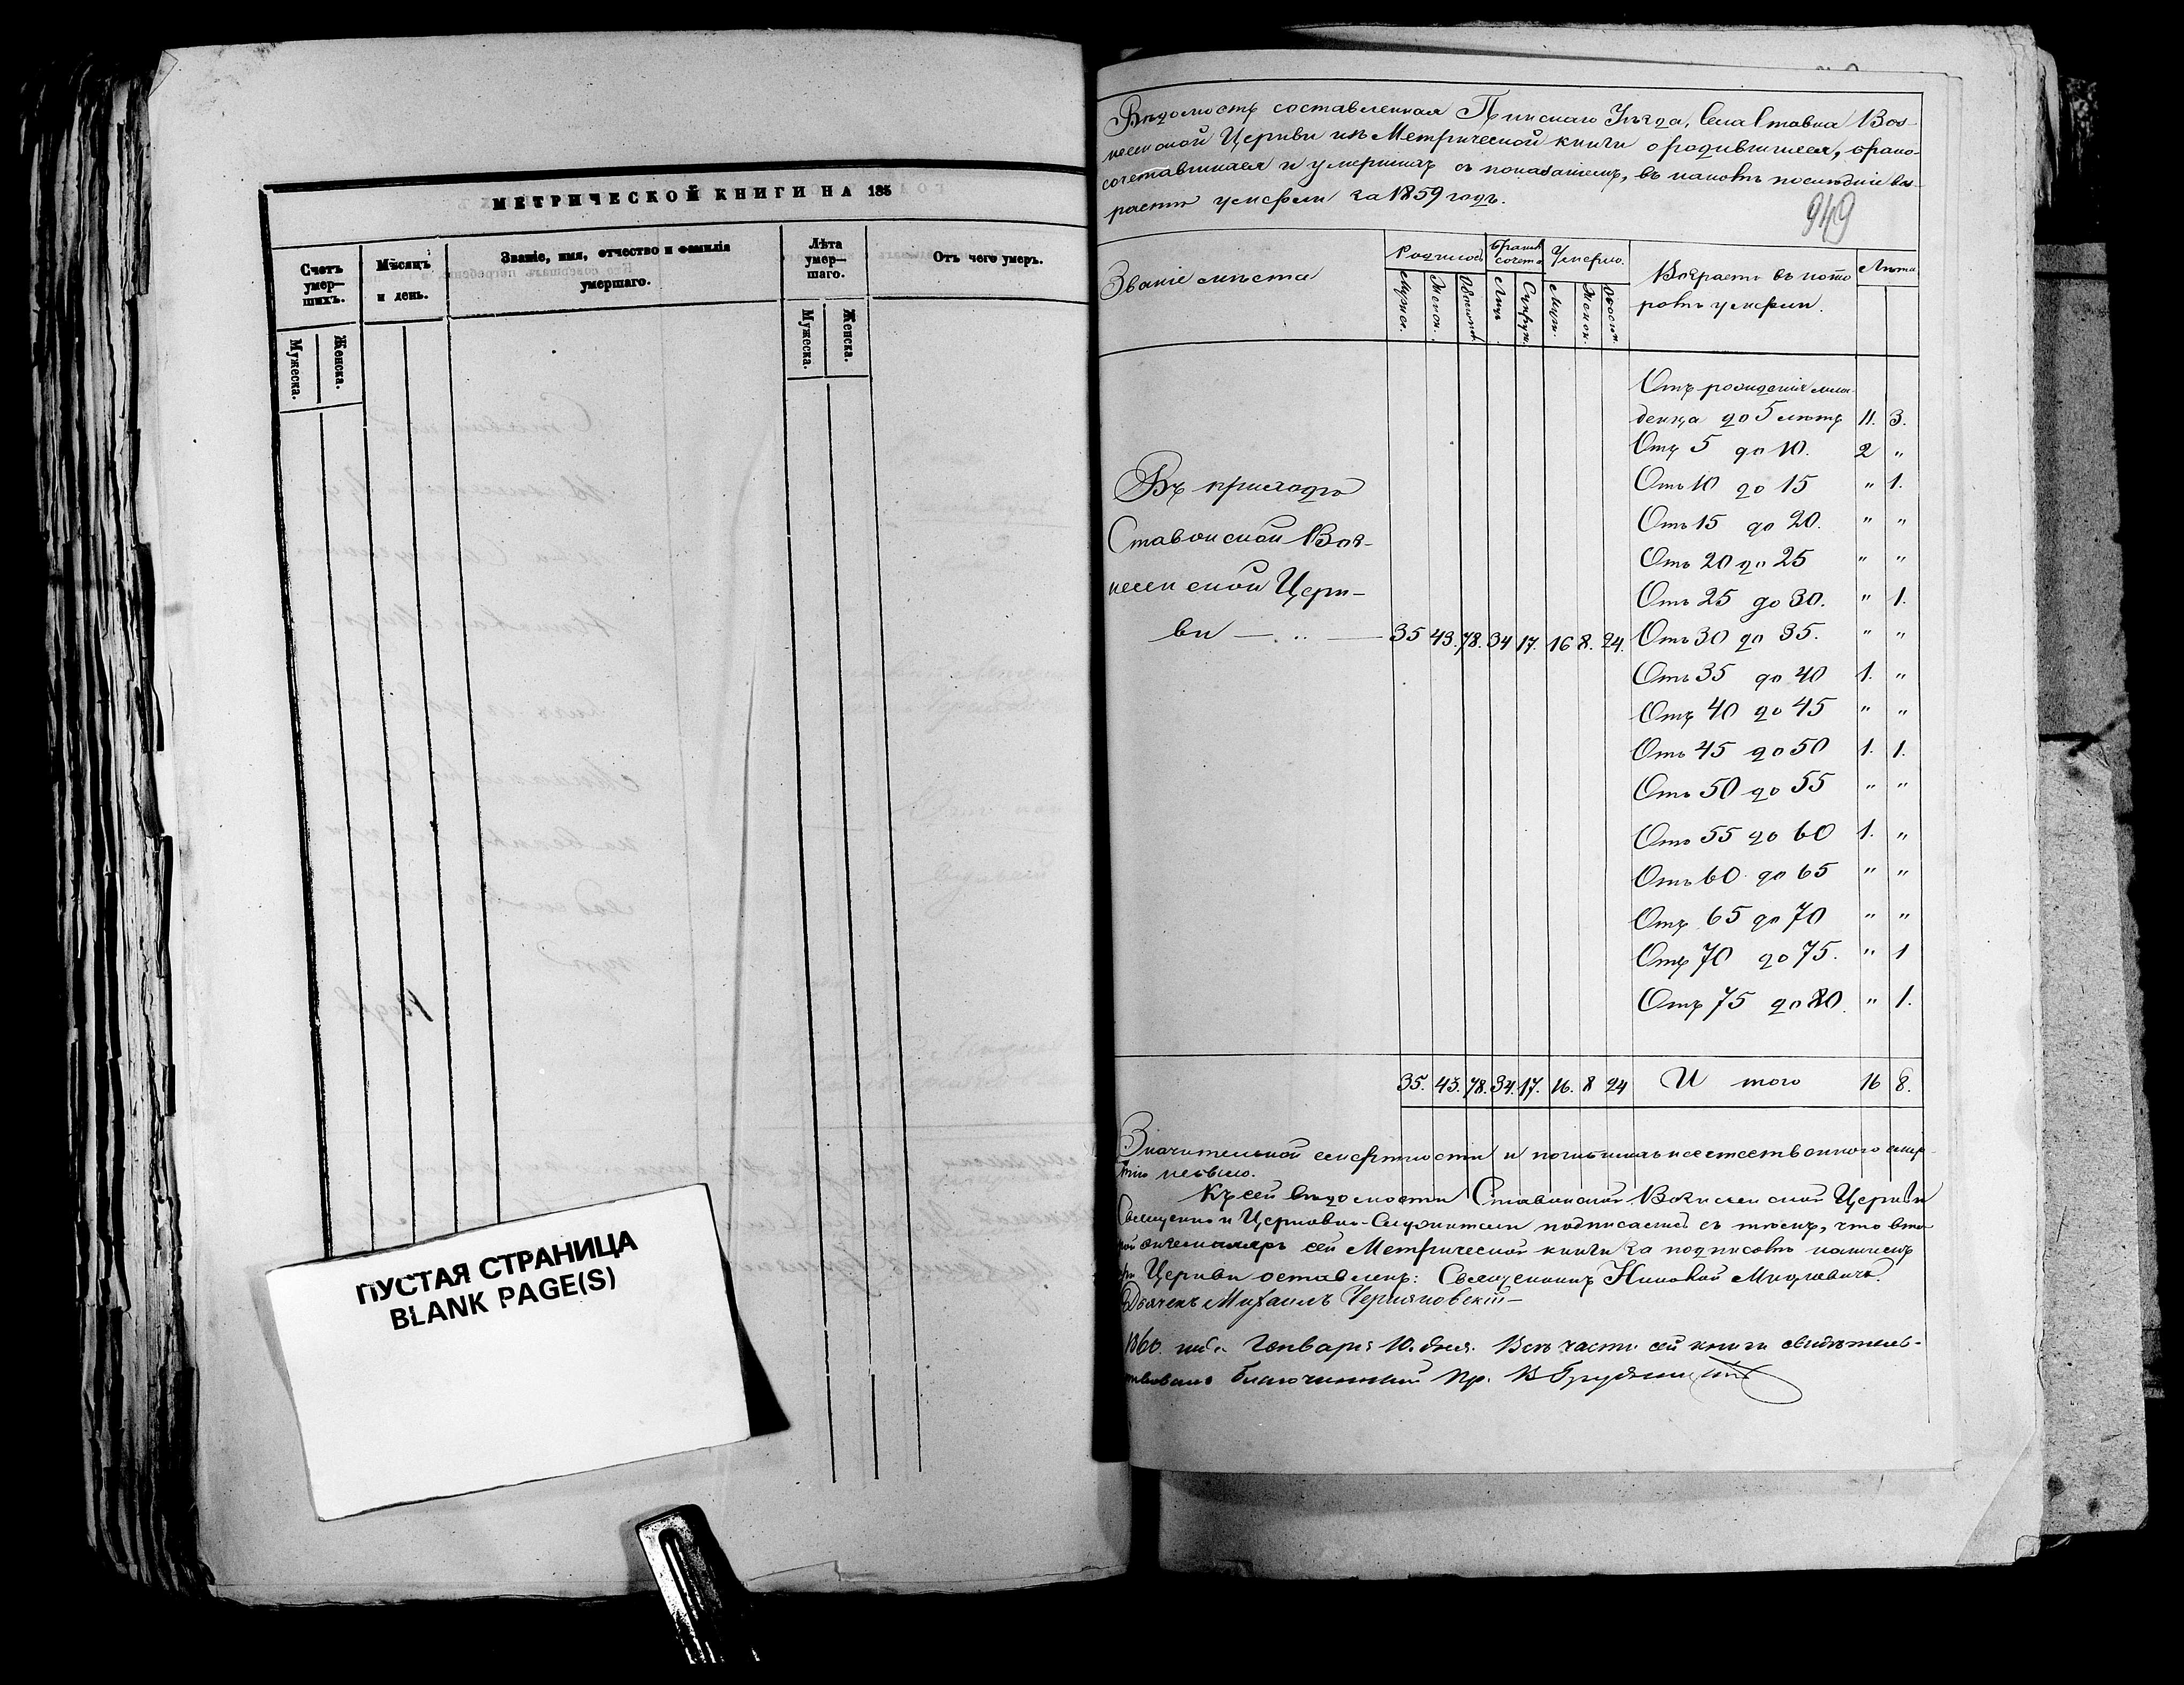 МЕТРИЧЕСКОЙ КНИГИ НА 185
Счетъ умер— шихъ.
Мѣсяцъ и день.
Званіе, имя, отчество и фамилія умершаго.
Лѣта умер— шаго.
Отъ чего умеръ.
Мужеска. Женска.
Мужеска. Женска.
ПУСТАЯ СТРАНИЦА
BLANK PAGE(S)
Вѣдомость составленная Пинскаго Уѣзда, Села Ставка Воз-
несенской Церкви изъ Метрической книги о родившихся, брако-
сочетавшихся и умершихъ съ показаніемъ, въ какомъ послѣдніе воз-
растѣ умерли за 1859 годъ.
949
Званіе мѣста
Родилось
Бракъ сочет.
Умерло.
Возрастъ въ кото
ромъ умерли.
Лѣта
Мужес. Женск. Обоихъ Лицъ Супруж. Муж. Женск. Обоего
Отъ рожденія мла-
денца до 5 лѣтъ 11. 3.
Отъ 5 до 10. 2 „
Отъ 10 до 15 „ 1.
Отъ 15 до 20. „ „
Отъ 20 до 25 „ „
Отъ 25 до 30. „ 1.
Въ приходѣ
Ставокской Воз-
несенской Церк-
ви — .. — 35 43. 78. 34 17. 16 8. 24. Отъ 30 до 35. „ „
Отъ 35 до 40 1. „
Отъ 40 до 45 „ „
Отъ 45 до 50 1. 1.
Отъ 50 до 55 „ „
Отъ 55 до 60 1. „
Отъ 60 до 65 „ „
Отъ 65 до 70 „ „
Отъ 70 до 75. „ 1
Отъ 75 до 80. „ 1.
35. 43. 78. 34. 17. 16. 8 24 И того 16 8.
Значительной смертности и погибшихъ неестественною смер-
тію небыло.
Къ сей вѣдомости Ставокской Вознесенской Церкви
Священно и Церковно-Служители подписались съ тѣмъ, что вто-
рой экземпляръ сей Метрической книги за подписомъ нашимъ
при Церкви оставленъ: Священникъ Николай
Дьячекъ Михаилъ Черняковскій —
1860. года Генваря 10. дня. Всѣ части сей книги свидѣтель-
ствовалъ Благочинный Пр. В